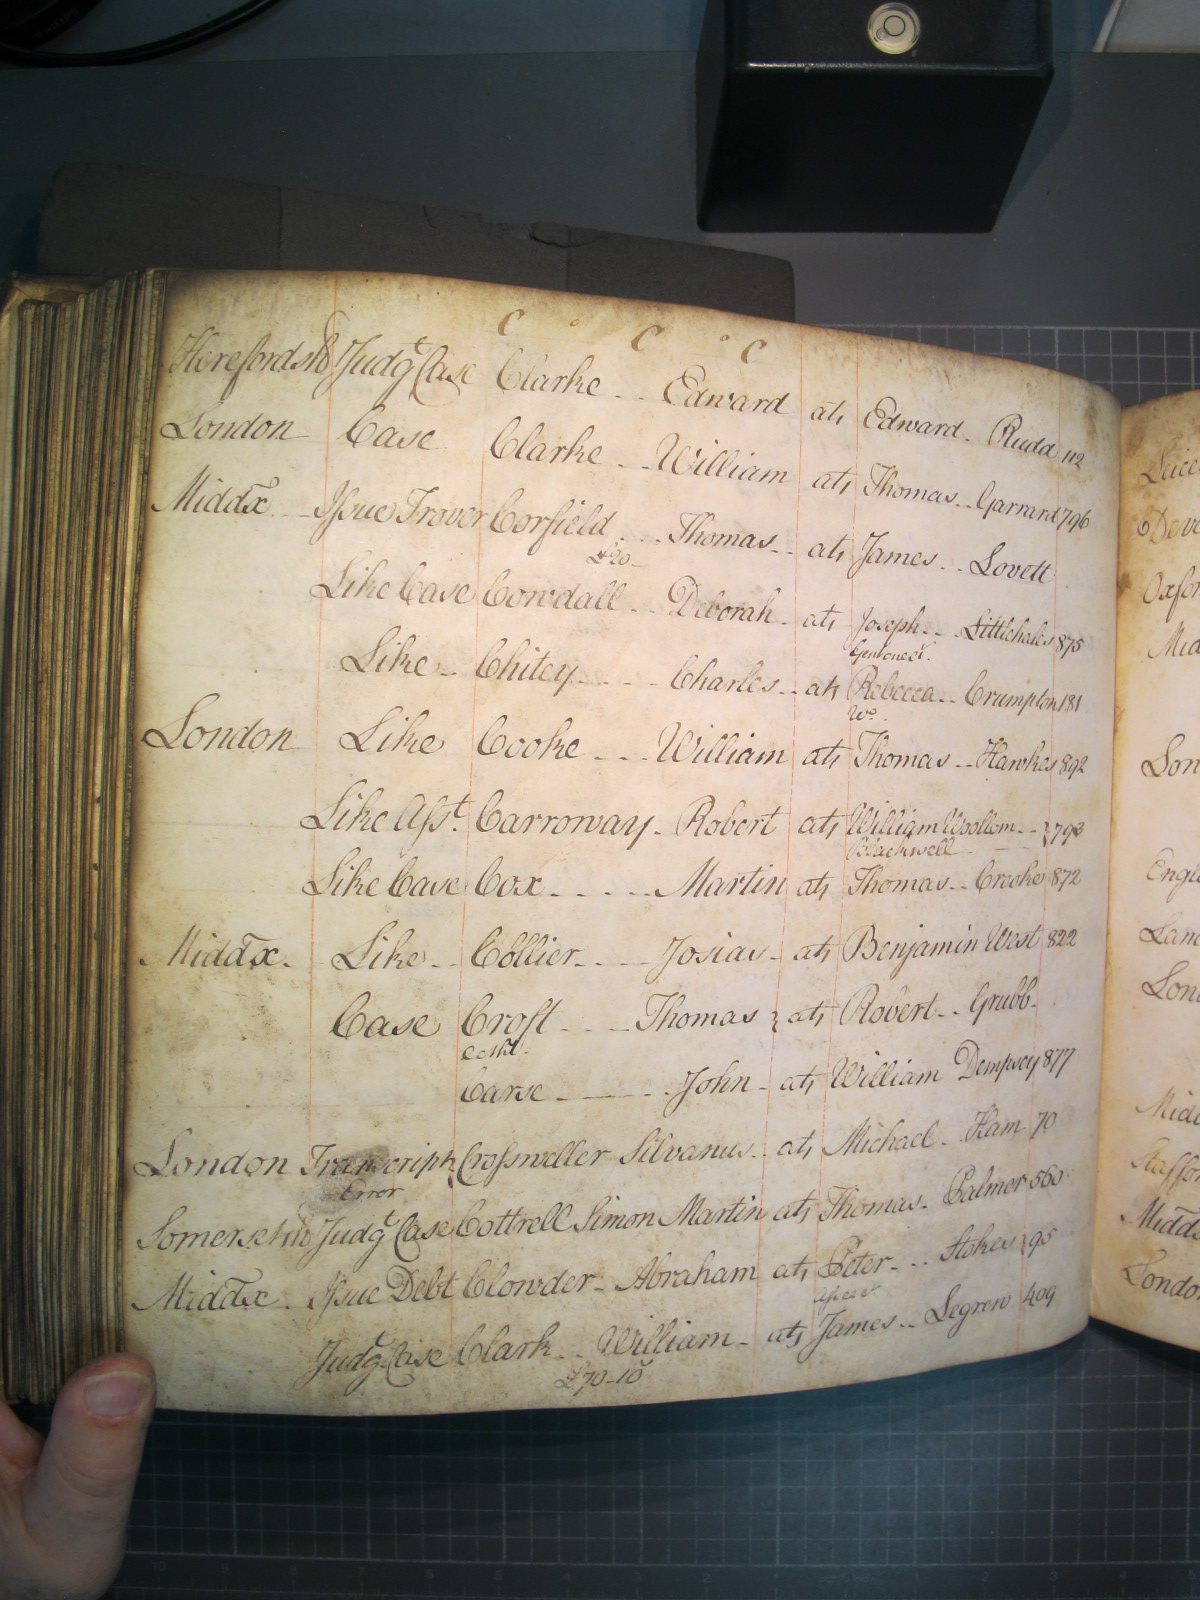 C C C
Herefordsh Judgt Case Clarke Edward at Edward Rudd 112
London Case Clarke William at Thomas Garrard 796
Middx Issue Trover Corfield Thomas at James Lovett
£20
Like Case Cowdall Deborah at Joseph Littlehales 875
Gent one &ct.
Like Chitey Charles at Rebecca Crumpton 181
Wo.
London Like Cooke William at Thomas Hawkes 892
Like Asst. Carroway Robert at William Woollom 793
Blackwell
Like Case Cox Martin at Thomas Crooke 872
Middx Like Collier Josias at Benjamin West 822
Case Croft Thomas at Robert Grubb
Carse John at William Dempsey 877
London Transcript Crossweller Silvanus at Michael Ham 70
Error
Somersetsh Judgt Case Cottrell Simon Martin at Thomas Palmer 560
Middx Issue Debt Clowder Abraham at Peter Stokes 95
Judgt Case Clark William at James Legrew 409
£70-10
Lon
Oxfor
Mid
Lon
Lanc
Lond
Midd
Staffor
Midds
London